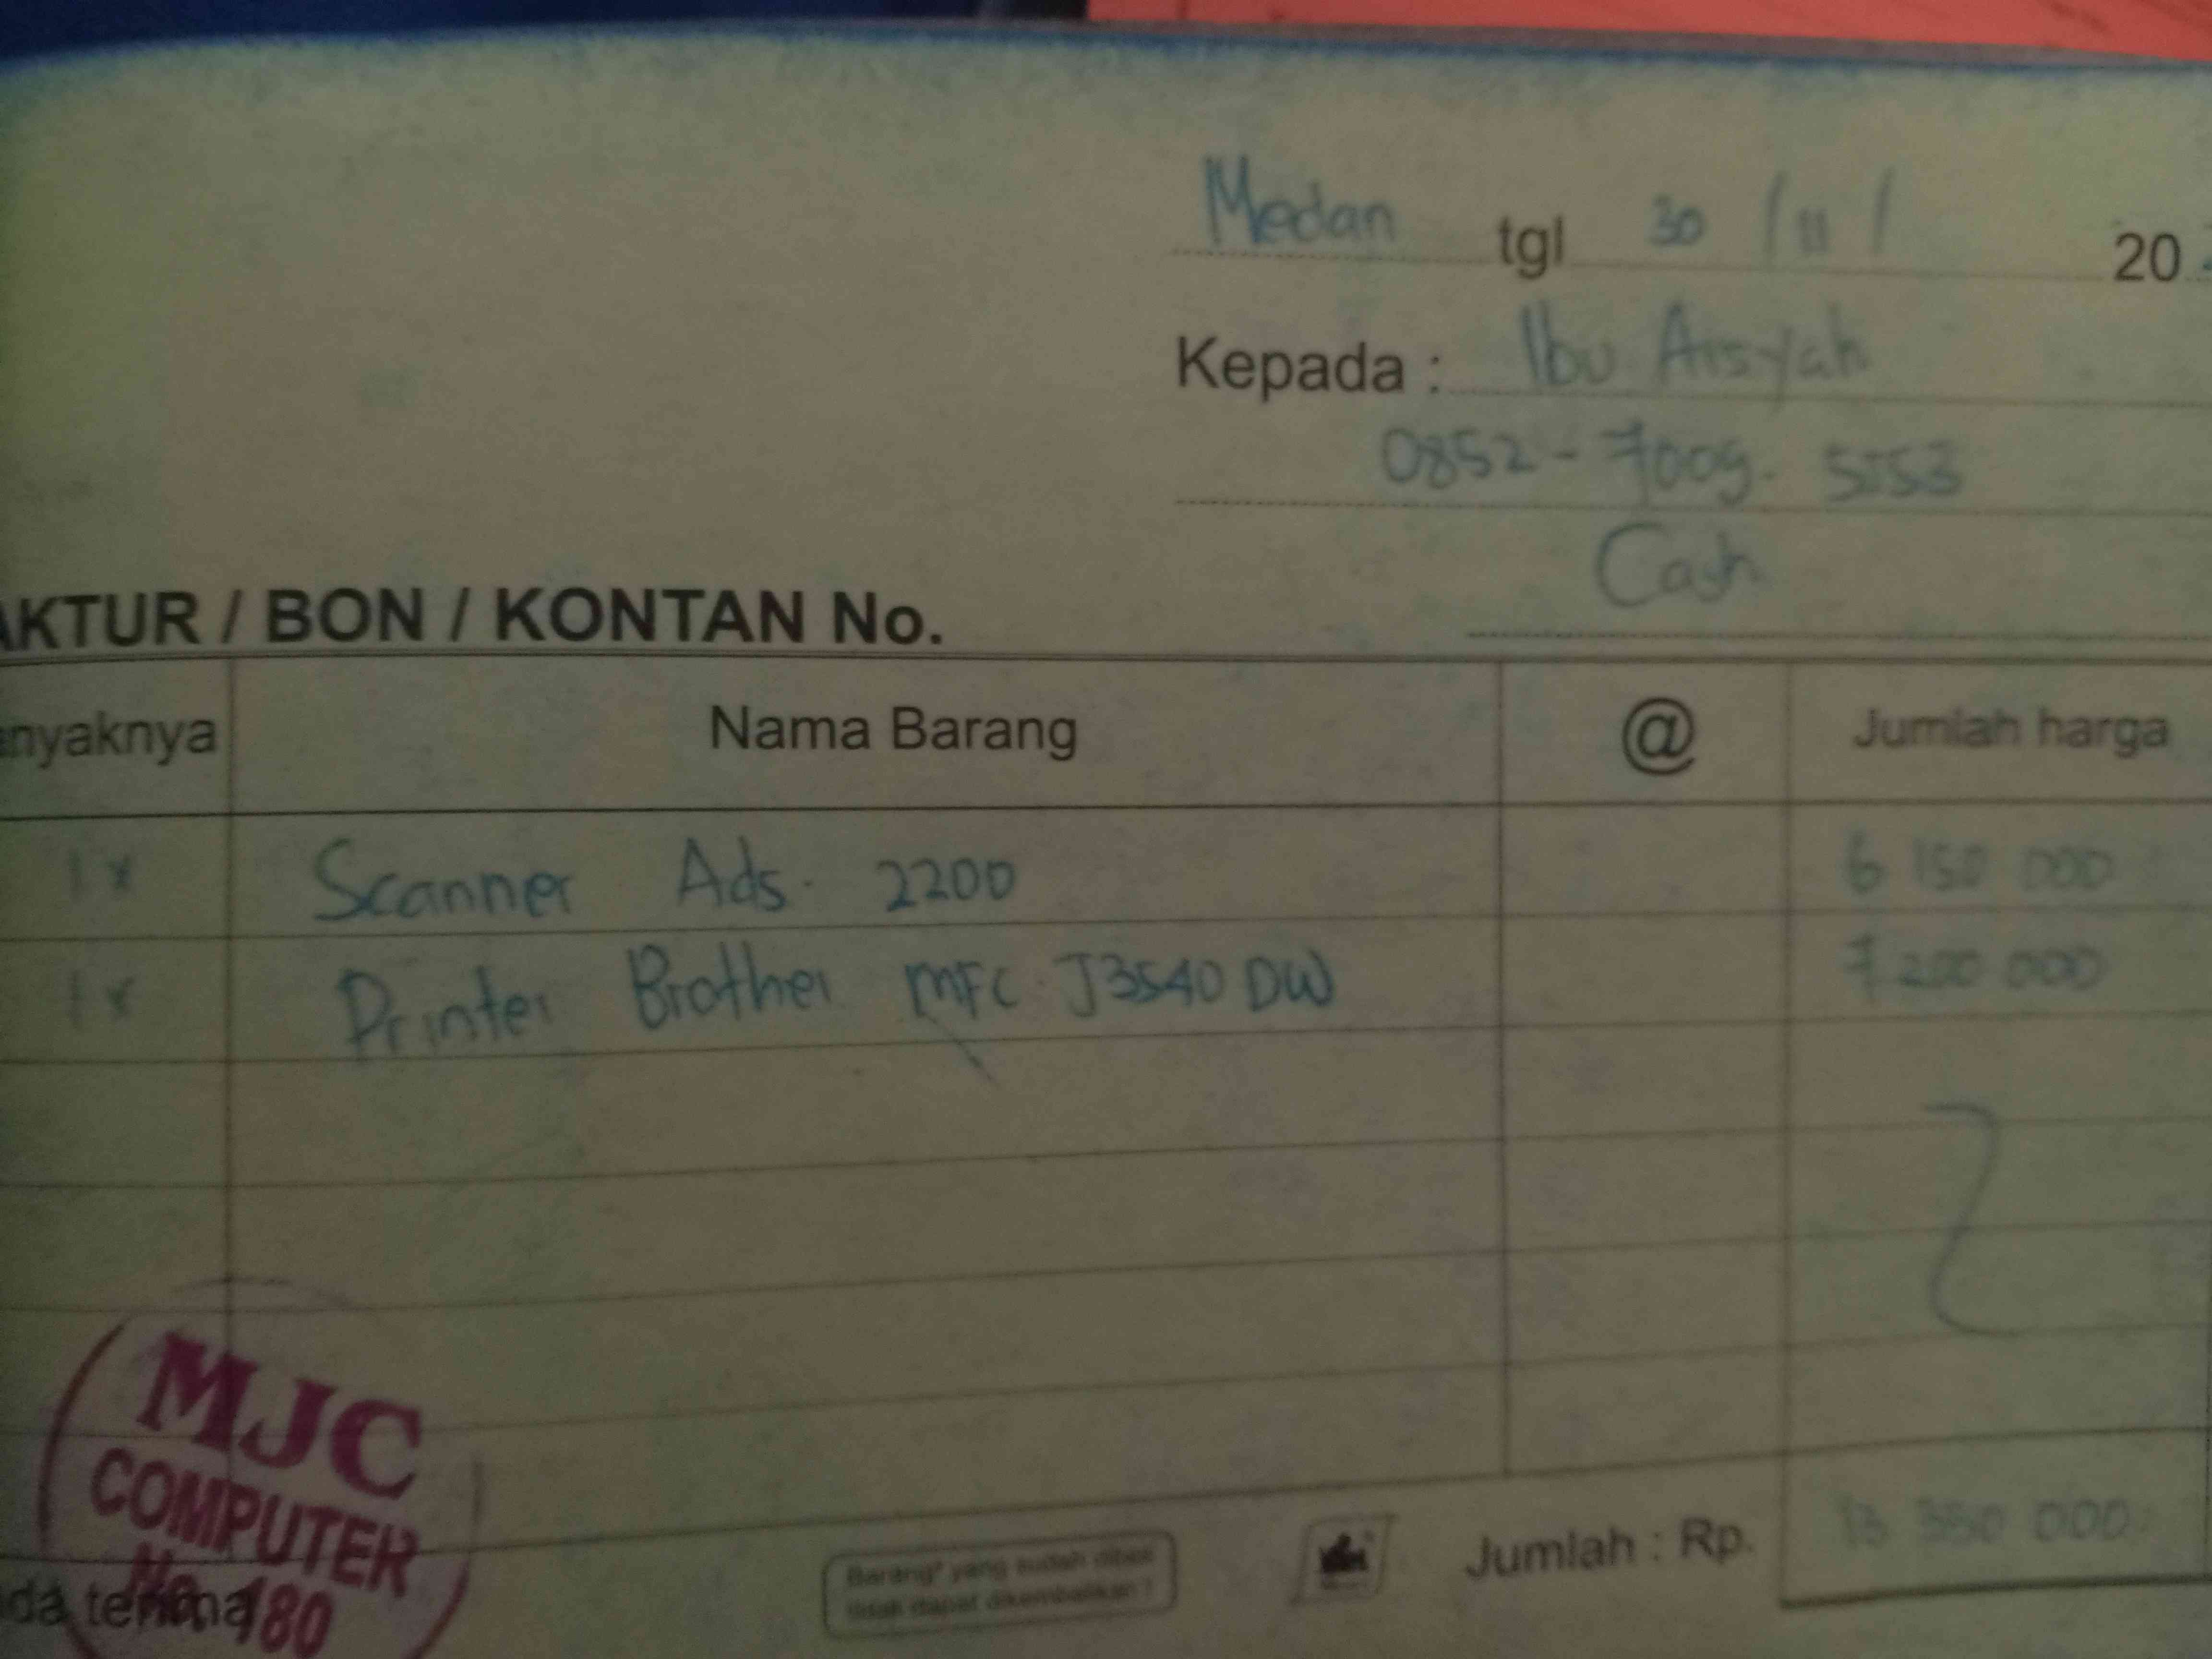 Medan tgl 30 / 11 / 20
Kepada : Ibu Aisyah
0852 - 7009. 5553
Cash
AKTUR / BON / KONTAN No.
anyaknya Nama Barang @ Jumlah harga
1 x Scanner Ads. 2200 6 150 000
1 x Printer Brother MFC J3540 DW 7 200 000
Jumlah : Rp. 13 350 000
Barang² yang sudah dibeli
tidak dapat dikembalikan !
MJC
COMPUTER
No. 180
da terima